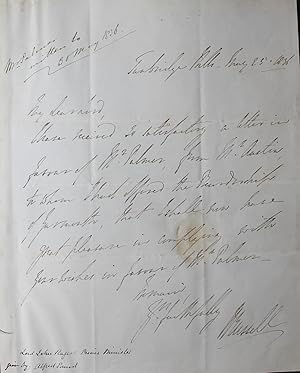 Mr Palmer
30 May 1836
Tunbridge Wells May 25. 1836
My dear Lord,
I have received so satisfactory a letter in
favour of Mr Palmer from Mr
to whom I had offered the
of Yarmouth, that I shall now have
great pleasure in complying with
your wishes in favour of Mr Palmer
I remain
Yrs faithfully
J Russell
Lord John Russell Prime Minister
given by Alfred